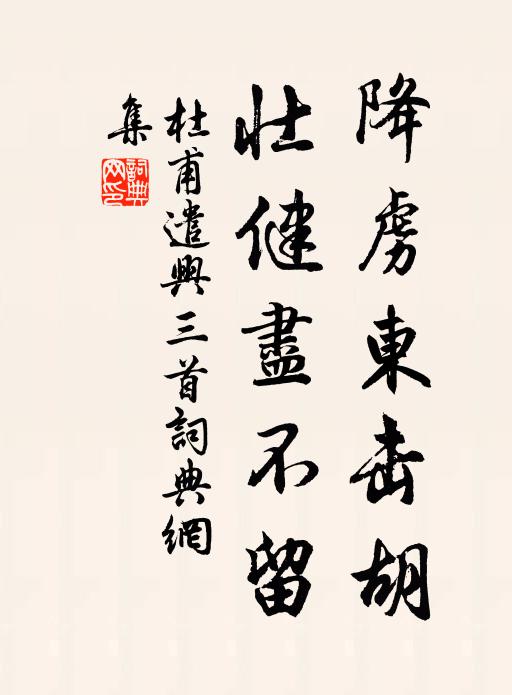 降虜東击胡
壮健盡不留
杜甫遣興三首詞典網
集
詞典
网印